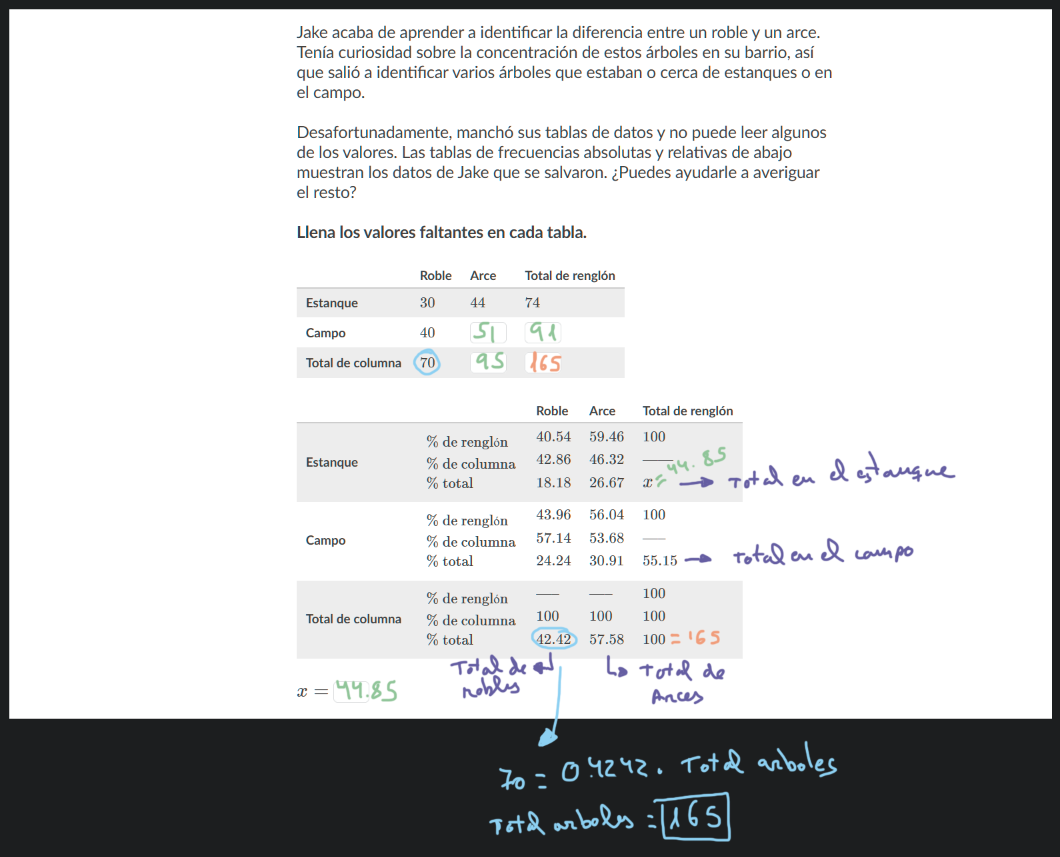 Jake acaba de aprender a identificar la diferencia entre un roble y un arce.
Tenía curiosidad sobre la concentración de estos árboles en su barrio, así
que salió a identificar varios árboles que estaban o cerca de estanques o en
el campo.
Desafortunadamente, manchó sus tablas de datos y no puede leer algunos
de los valores. Las tablas de frecuencias absolutas y relativas de abajo
muestran los datos de Jake que se salvaron. ¿Puedes ayudarle a averiguar
el resto?
Llena los valores faltantes en cada tabla.
Roble Arce Total de renglón
Estanque 30 44 74
Campo 40 51 91
Total de columna 70 95 165
Roble Arce Total de renglón
% de renglón 40.54 59.46 100
Estanque % de columna 42.86 46.32 —
% total 18.18 26.67 x = 44.85 → Total en el estanque
% de renglón 43.96 56.04 100
Campo % de columna 57.14 53.68 —
% total 24.24 30.91 55.15 → Total en el campo
% de renglón — — 100
Total de columna % de columna 100 100 100
% total 42.42 57.58 100 = 165
Total de robles
Total de Arces
x = 44.85
70 = 0.4242 . Total arboles
Total arboles = 165